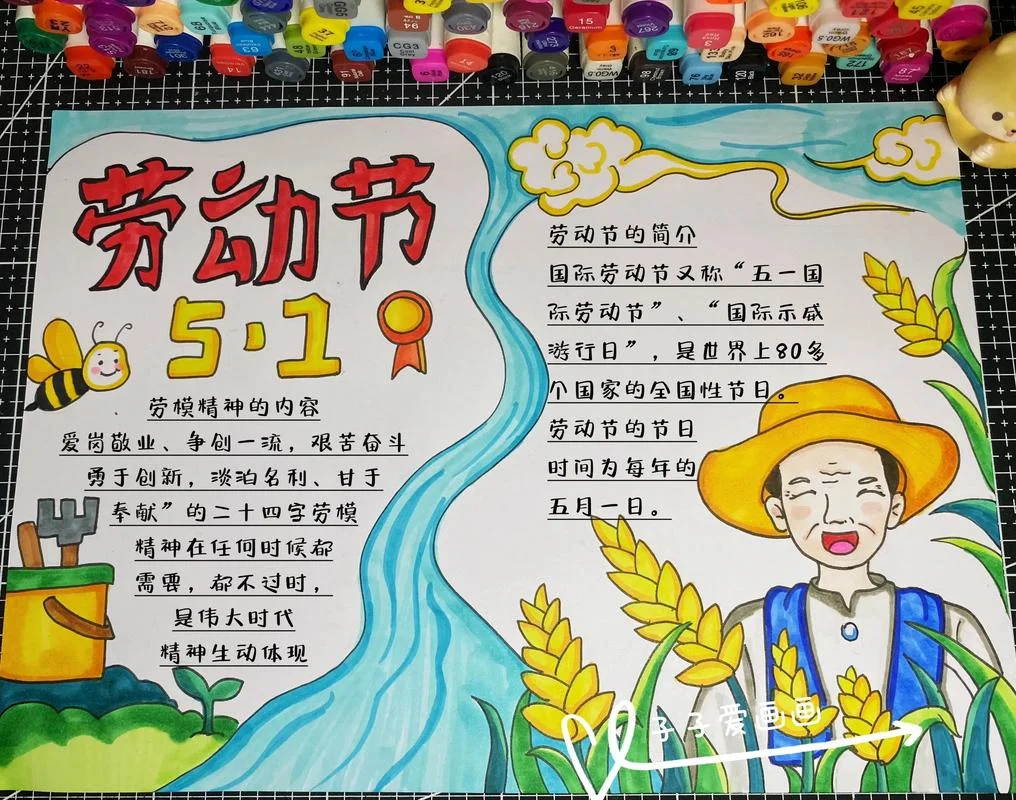 劳动节
5·1
劳模精神的内容
爱岗敬业、争创一流，艰苦奋斗
勇于创新，淡泊名利、甘于
奉献”的二十四字劳模
精神在任何时候都
需要，都不过时，
是伟大时代
精神生动体现
劳动节的简介
国际劳动节又称“五一国
际劳动节”、“国际示威
游行日”，是世界上80多
个国家的全国性节日。
劳动节的节日
时间为每年的
五月一日。
子子爱画画